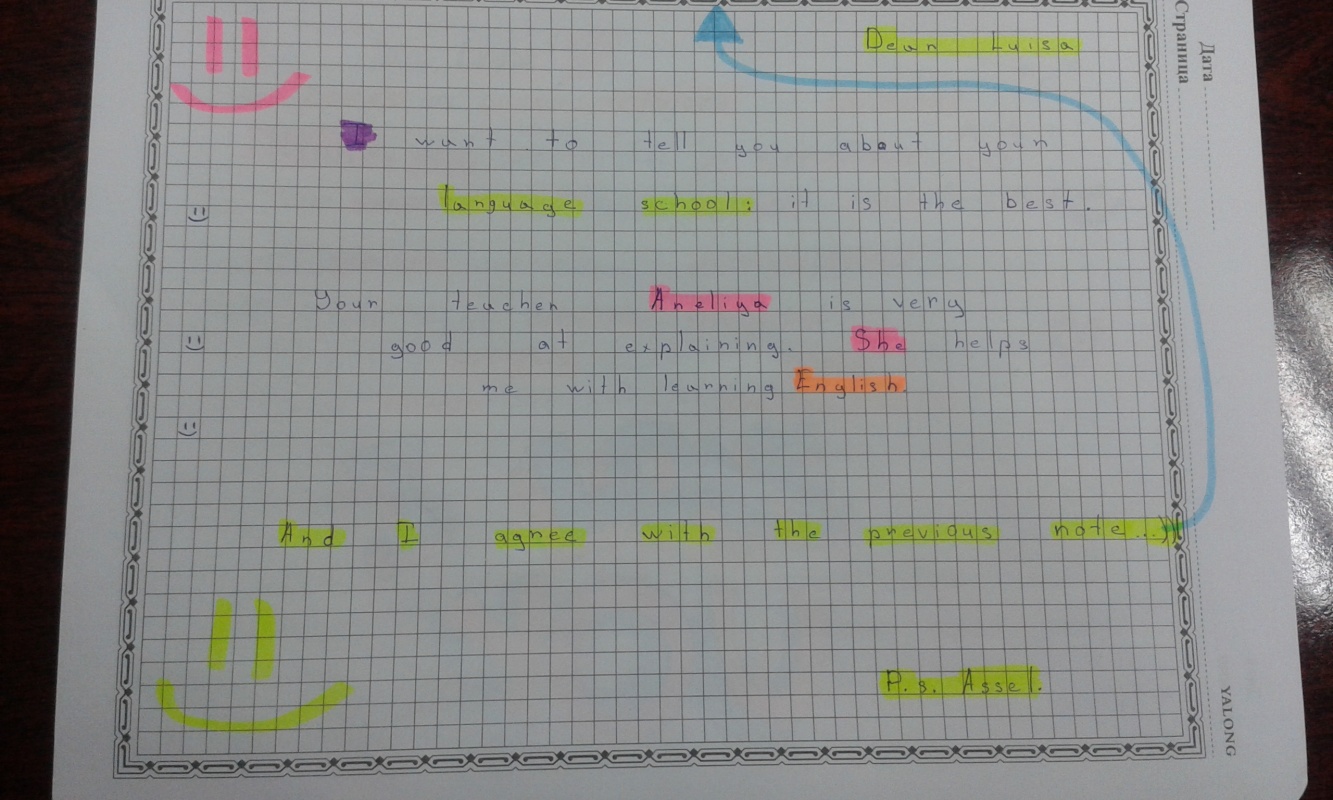 Dear Luisa
I want to tell you about your
language school: it is the best.
Your teacher Aneliya is very
good at explaining. She helps
me with learning English.
And I agree with the previous note...))
P.s. Assel.
Дата
Страница
YALONG